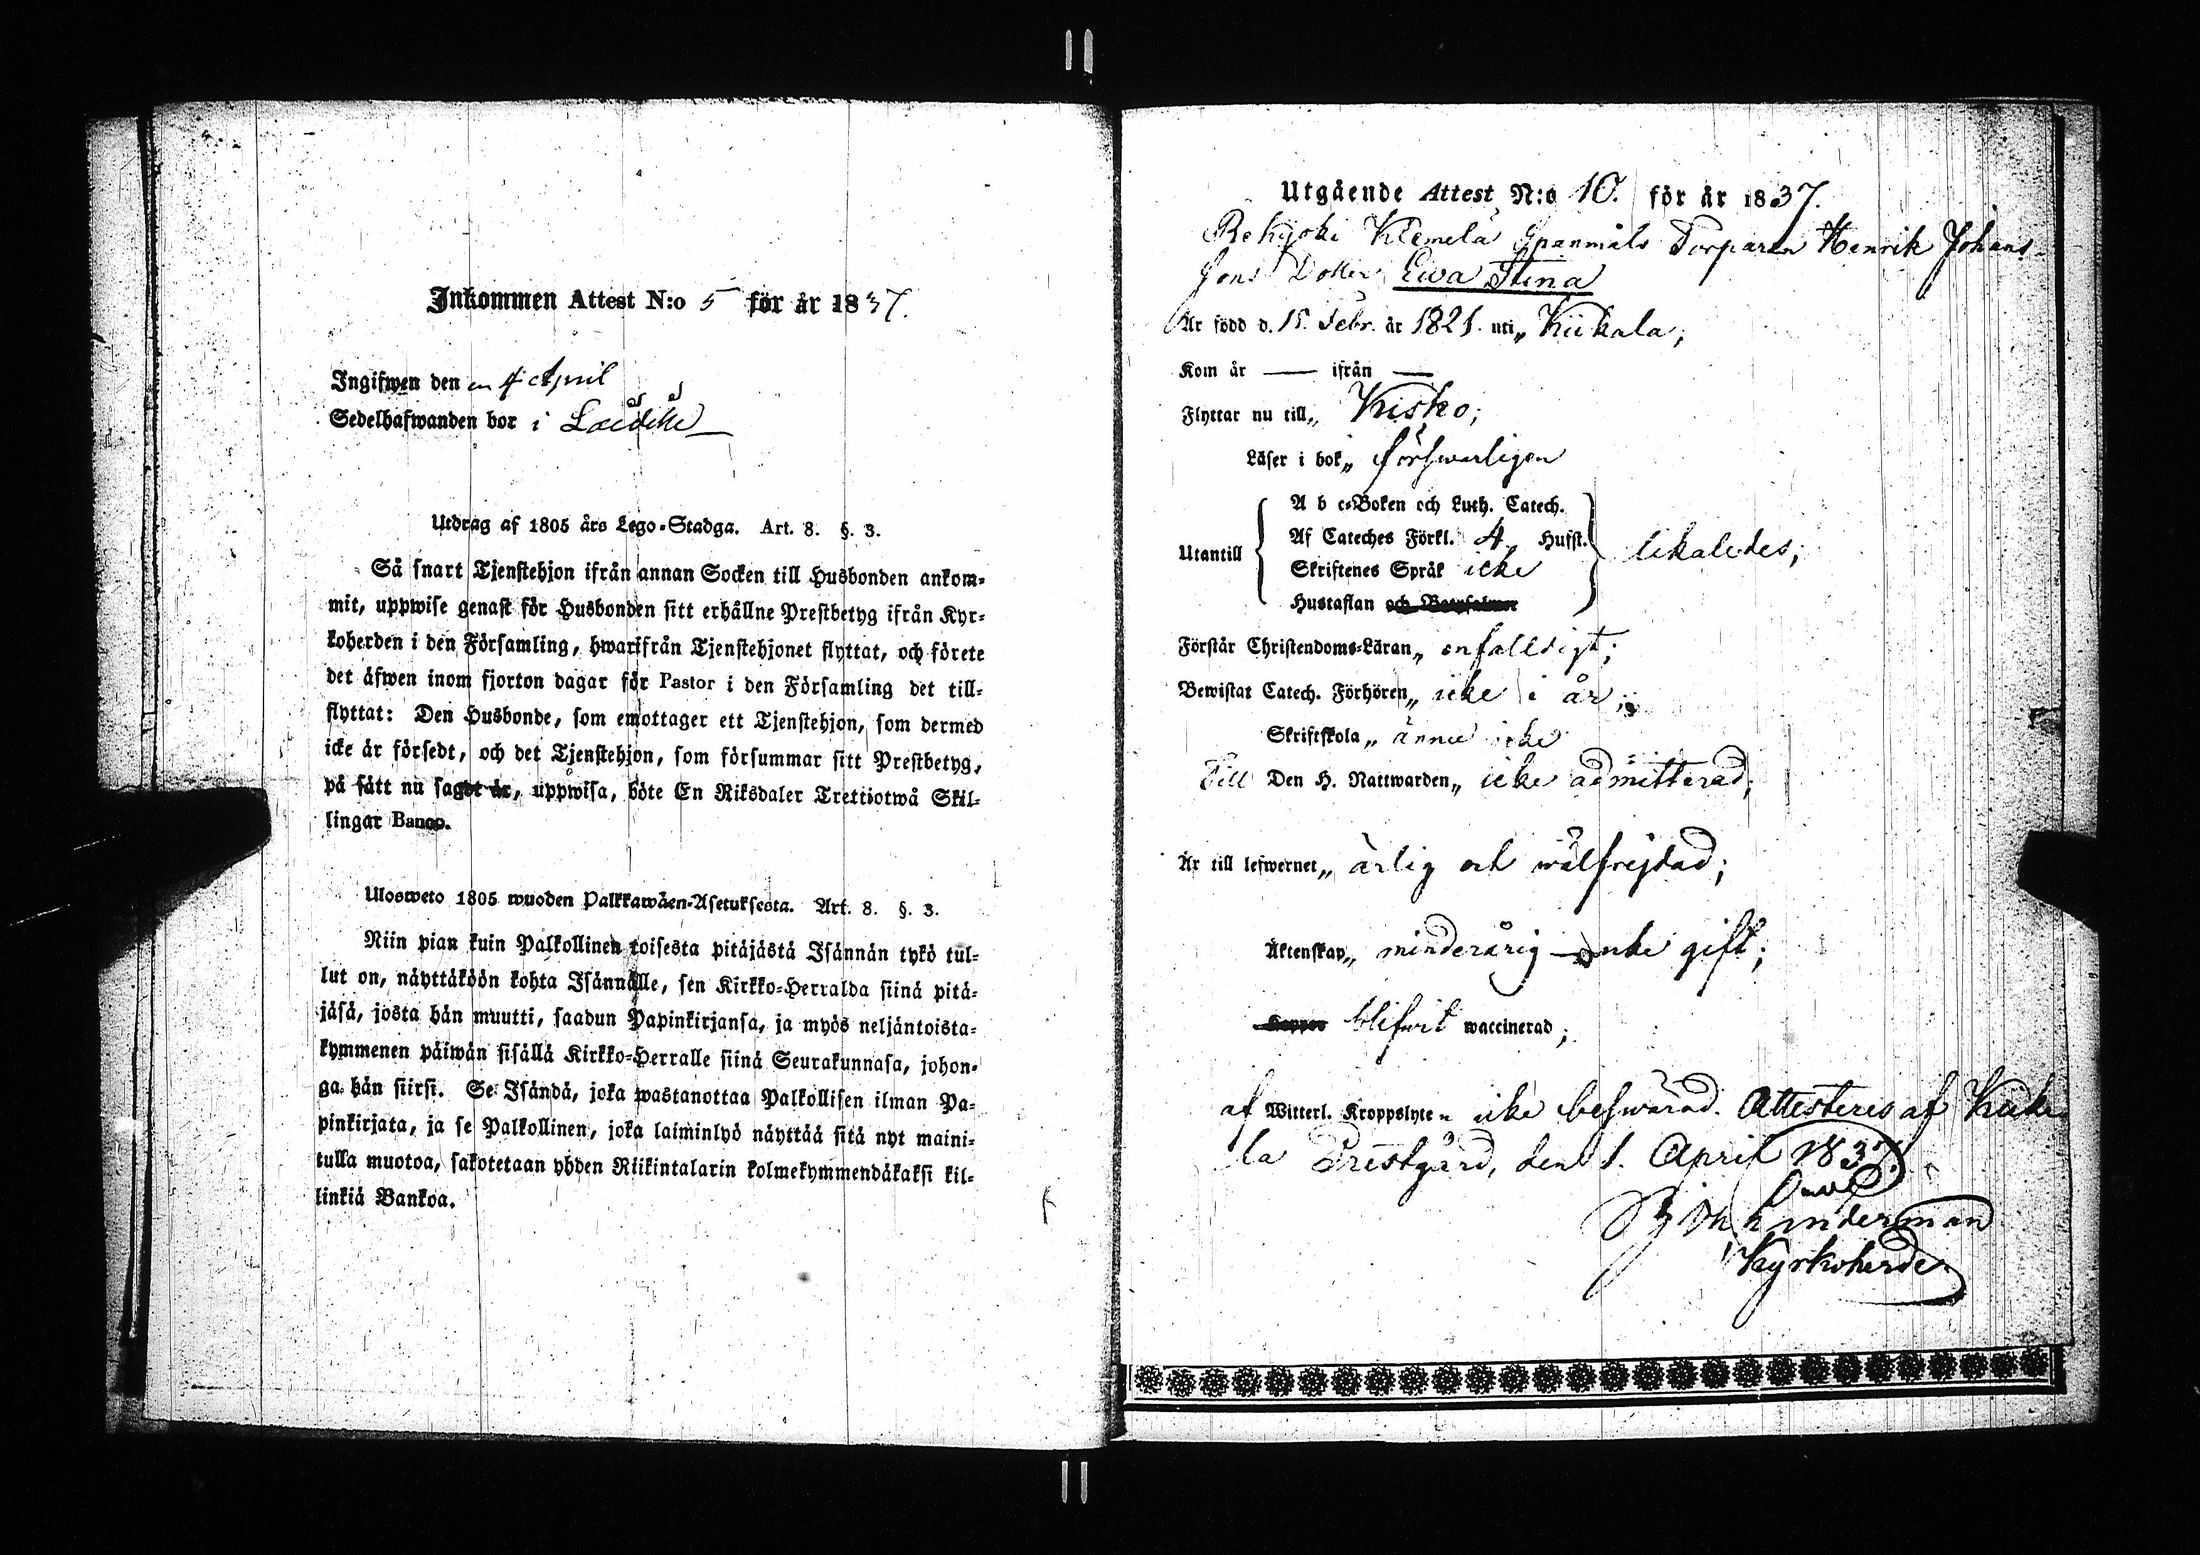 Inkommen Attest N:o 5 för år 1837.
Ingifwen den 4 April
Sedelhafwanden bor i
Utdrag af 1805 års Lego-Stadga. Art. 8. §. 3.
Så snart Tjenstehjon ifrån annan Socken till Husbonden ankom-
mit, uppwise genast för Husbonden sitt erhållne Prestbetyg ifrån Kyr-
koherden i den Församling, hwarifrån Tjenstehjonet flyttat, och förete
det äfwen inom fjorton dagar för Pastor i den Församling det till-
flyttat: Den Husbonde, som emottager ett Tjenstehjon, som dermed
icke är försedt, och det Tjenstehjon, som försummar sitt Prestbetyg,
på sätt nu sagdt är, uppwisa, böte En Riksdaler Trettiotwå Skil-
lingar Banco.
Ulosweto 1805 wuoden Palkkawäen-Asetuksesta. Art. 8. §. 3.
Niin pian kuin Palkollinen toisesta pitäjästä Isännän tykö tul-
lut on, näyttäköön kohta Isännälle, sen Kirkko-Herralda siinä pitä-
jäsä, josta hän muutti, saadun Papinkirjansa, ja myös neljäntoista-
kymmenen päiwän sisällä Kirkko-Herralle siinä Seurakunnasa, johon-
ga hän siirsi. Se Isändä, joka wastanottaa Palkollisen ilman Pa-
pinkirjata, ja se Palkollinen, joka laiminlyö näyttää sitä nyt maini-
tulla muotoa, sakotetaan yhden Riikintalarin kolmekymmendäkaksi kil-
linkiä Bankoa.
Utgående Attest N:o 10. för år 1837.
Rekijoki Klemelä Spanmåls Torparen Henrik Johans
sons Dotter Ewa Stina
Är född d. 15. Febr. år 1821. uti „ Kiikala;
Kom år — ifrån —
Flyttar nu till „ Kisko;
Läser i bok „ försvarligen
A b c-Boken och Luth. Catech.
Af Cateches Förkl. 4 Hufst.
Utantill likaledes;
Skriftenes Språk icke
Hustaflan och Botpsalmer
Förstår Christendoms-Läran „ enfalldigt;
Bewistat Catech. Förhören „ icke i år;
Skriftskola „ ännu icke
Till Den H. Nattwarden „ icke admitterad;
Är till lefwernet „ ärlig och wälfrejdad;
Äktenskap „ minderårig — gift;
Koppor blifwit waccinerad;
af Witterl. Kroppslyte „ icke beswärad. Attesteres af Kiika
la Prestgård, den 1. April 1837.
Kyrkoherde